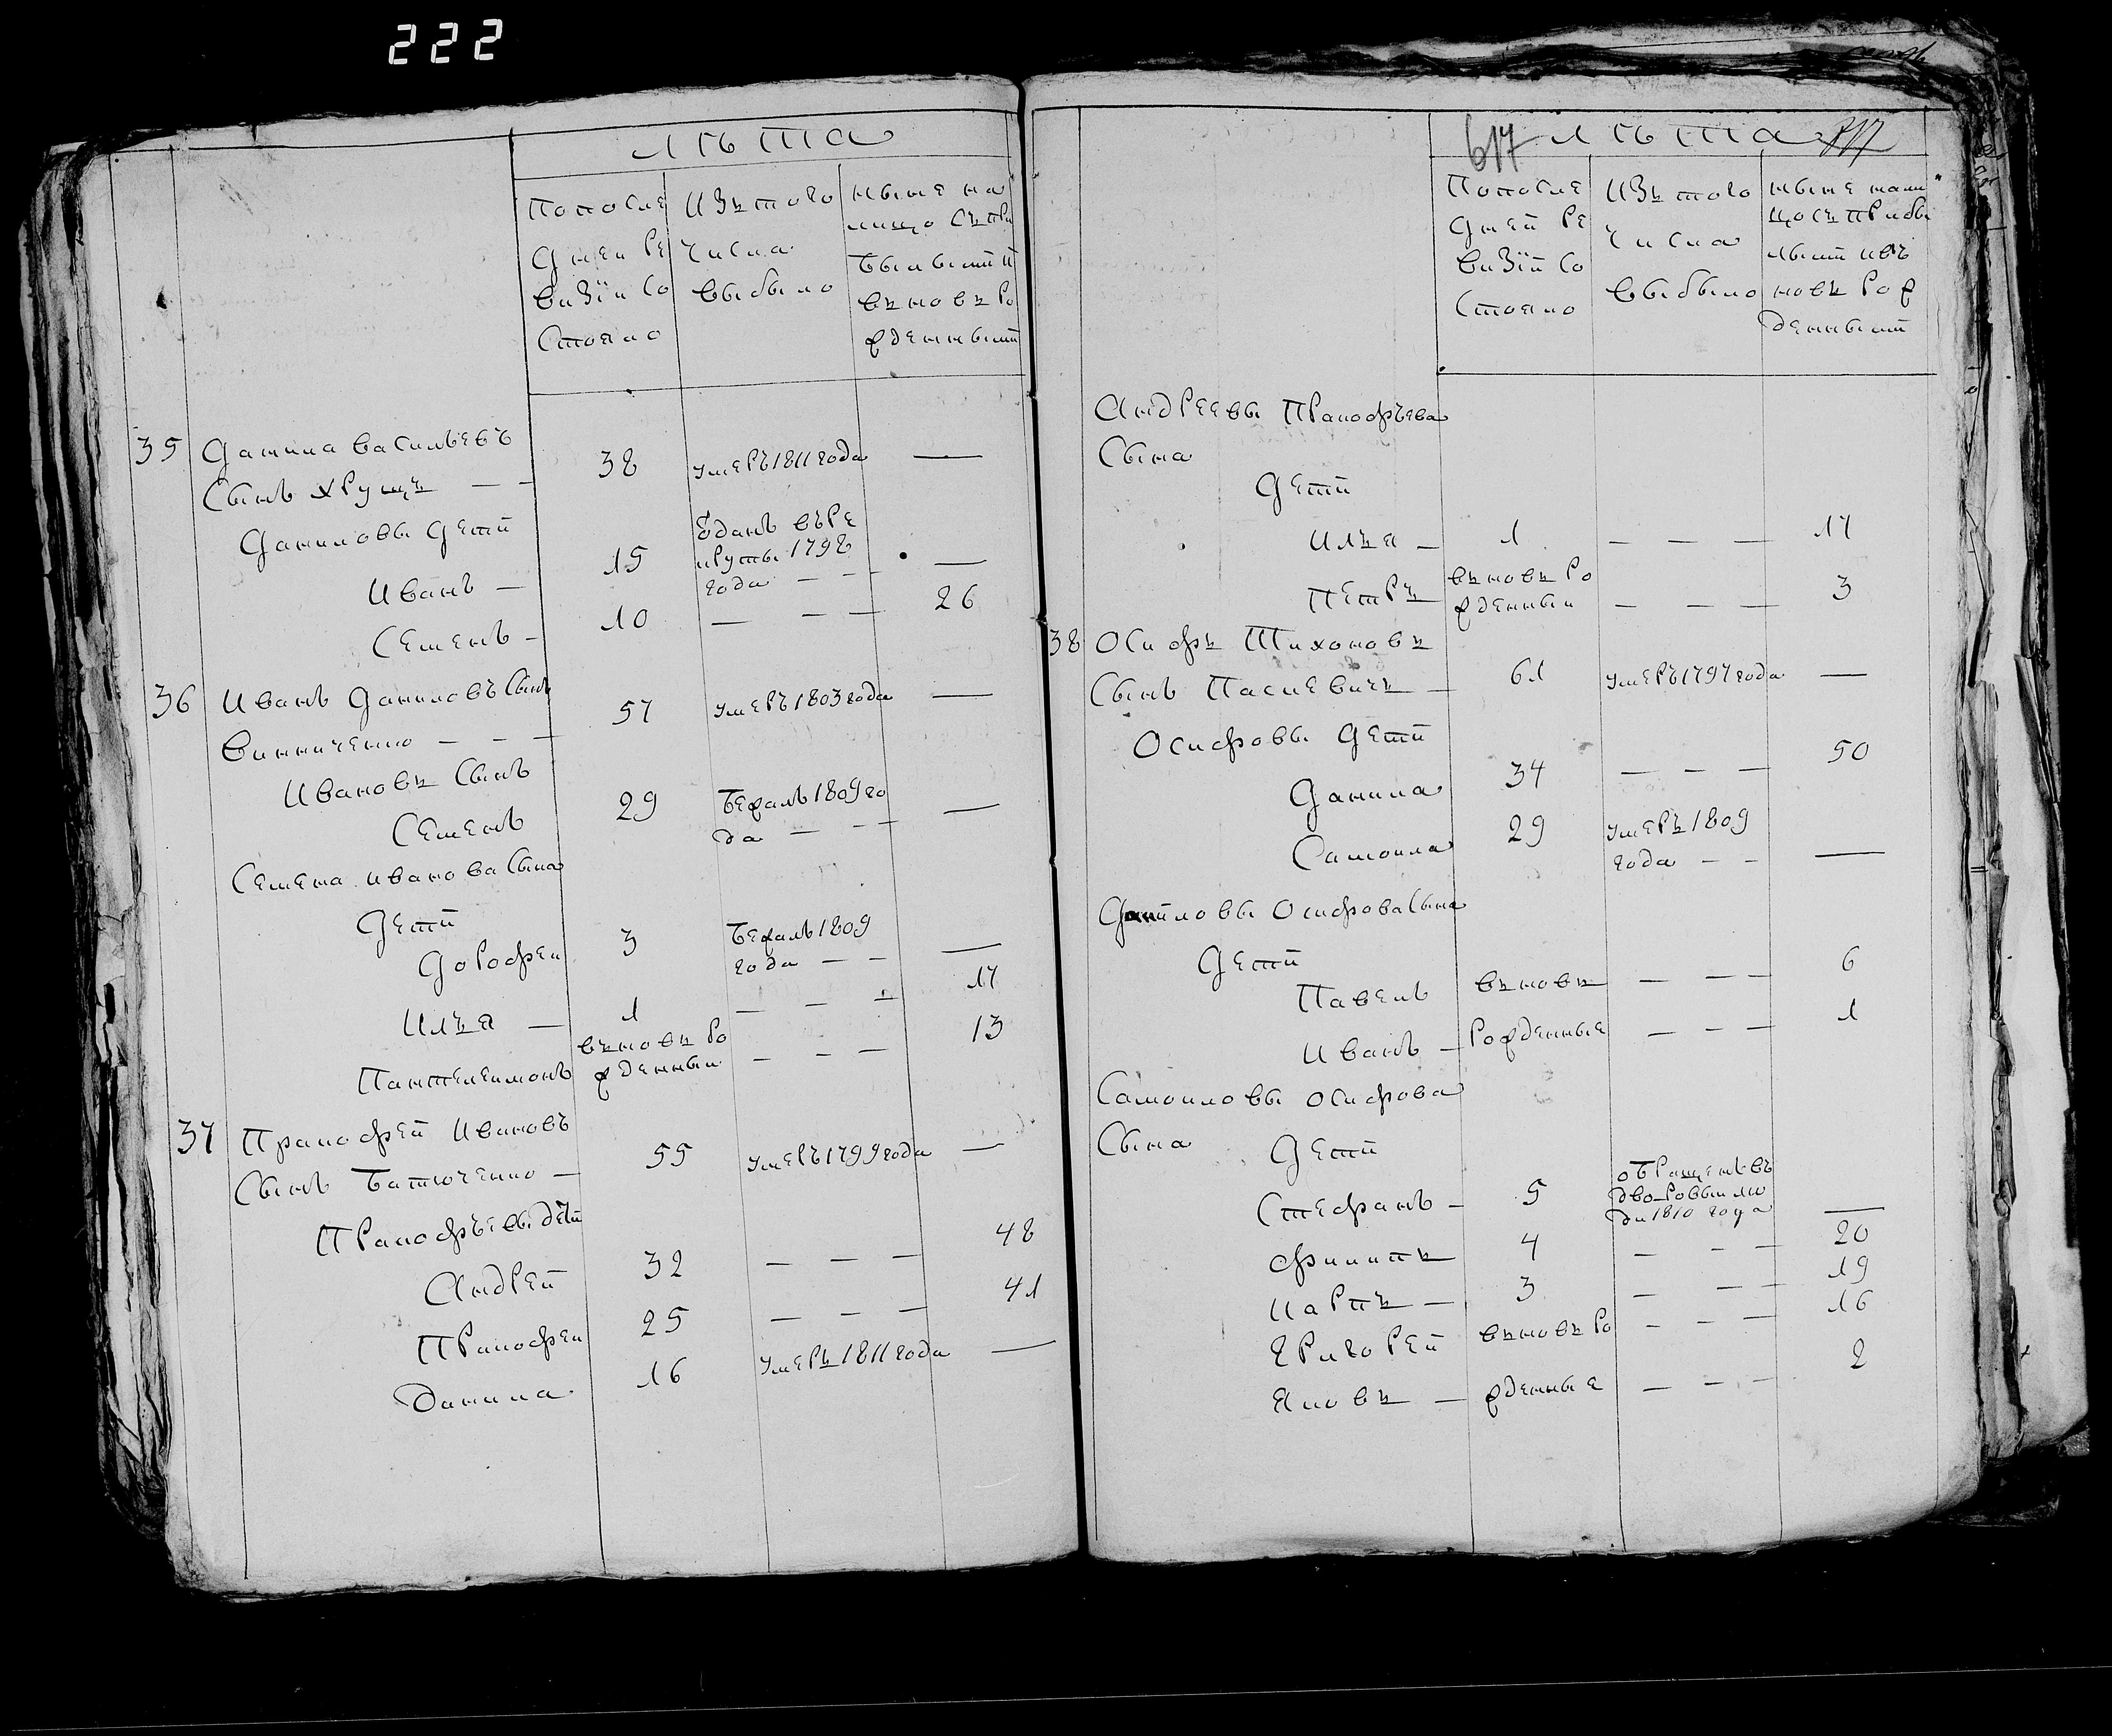 222
лѣта
Попослѣ
дней ре
визіи со
стояло
Изъ того
числа
выбыло
ныне на
лицо съ при
былыми и
вновь ро
жденными
35 Данила васильевъ
сынъ хрущъ — — 38 умеръ 1811 года —
Даниловы Дети
Иванъ — 15 одань въ ре
круты 1798
года — — —
Семенъ — 10 — — — 26
36 Иванъ Даниловъ сынъ
Винниченко — — — 57 умеръ 1803 года —
Ивановъ сынъ
Семенъ 29 бежалъ 1809 го
да — — — —
Семена иванова сына
Дети
Дорофеи 3 бежалъ 1809
года — — —
Илья — 1 — — — 17
Пантелеимонъ вновь ро
жденныи — — — 13
37 Пракофей Ивановъ
сынъ Батюченко — 55 умеръ 1799 года —
Пракофьевы дѣти
Андрей 32 — — — 48
Пракофеи 25 — — — 41
Данила 16 умеръ 1811 года —
617 лѣта
Попосле
дней ре
визіи со
стояло
Изъ того
числа
выбыло
ныне нали
цо съ прибы
лыми и въ
новь рож
денными
Андреевы Пракофьева
сына
Дети
Илья — 1 — — — 17
Петръ вновь ро
жденныи — — — 3
38 Осифъ Тихоновъ
сынъ Пасиевичъ — 61 умеръ 1797 года —
Осифовы Дети
Данила 34 — — — 50
Самоила 29 умеръ 1809
года — — —
Даниловы Осифова сына
Дети
Павелъ вновь — — — 6
Иванъ — рожденные — — — 1
Самоиловы Осифова
сына Дети
Стефанъ — 5 обращенъ въ
дворовыи лю
ди 1810 года —
Филипъ 4 — — — 20
Карпъ — 3 — — — 19
Григорей вновь ро — — — 16
Яковъ — жденные — — — 2